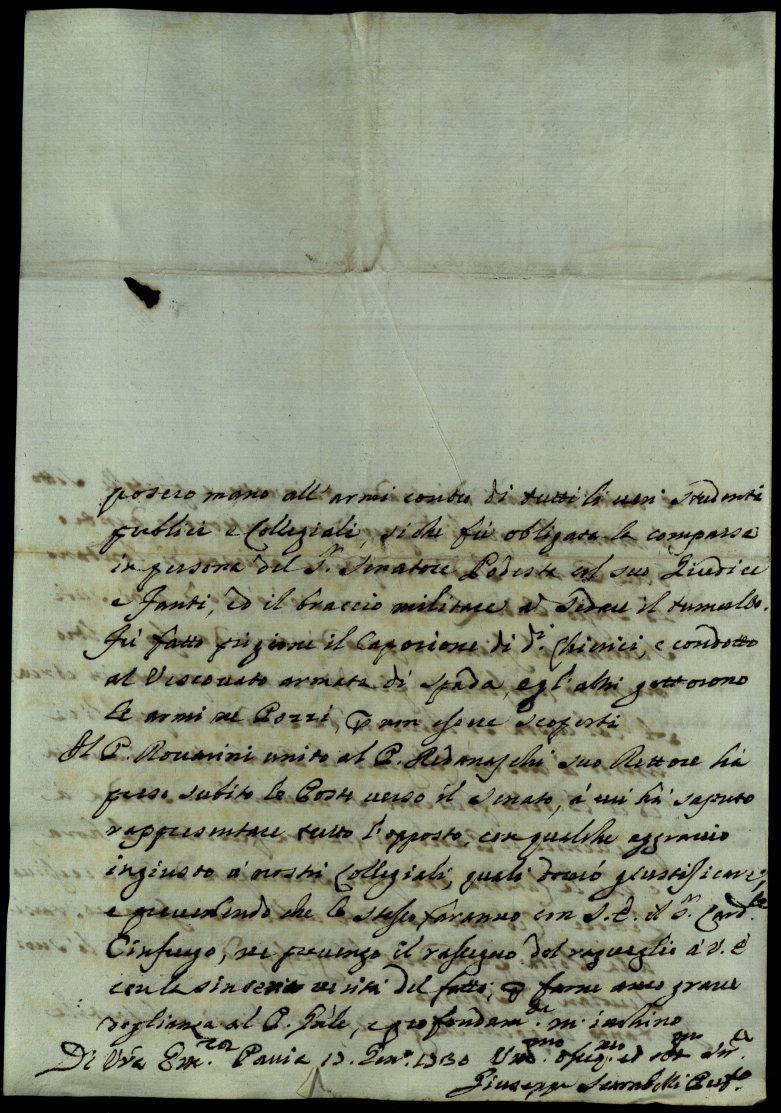 posero mano all'armi contro di tutti li veri Studenti
publici e Collegiali, si che fù obligata la comparsa
in persona del Sr. Senatore Podestà col suo Giudice
e Fanti, ed il braccio militare a sedare il tumulto.
Fù fatto prigione il Caporione di di. Chierici, e condotto
al Vescovato armata di spada, e gl'altri gettorono
le armi ne Pozzi, p non essere scoperti
Il P. Rovarini unito al P. Redanaschi suo Rettore hà
preso subito le Poste verso il Senato, à cui hà saputo
rappresentare tutto l'opposto, con qualche aggravio
ingiusto a nostri Collegiali, quali dovrò giustificare,
e prevedendo che lo stesso faranno con S. E. il Sr. Card.le
Cinfuego, ne prevengo il rassegno del raguaglio à V. E
con la sincera verità del fatto, p farne anco grave
doglianza al P. Gnle, e profondam.te m'inchino
Di Vra Em.za Pavia 13. Gen.o 1730 Um.mo
Giuseppe